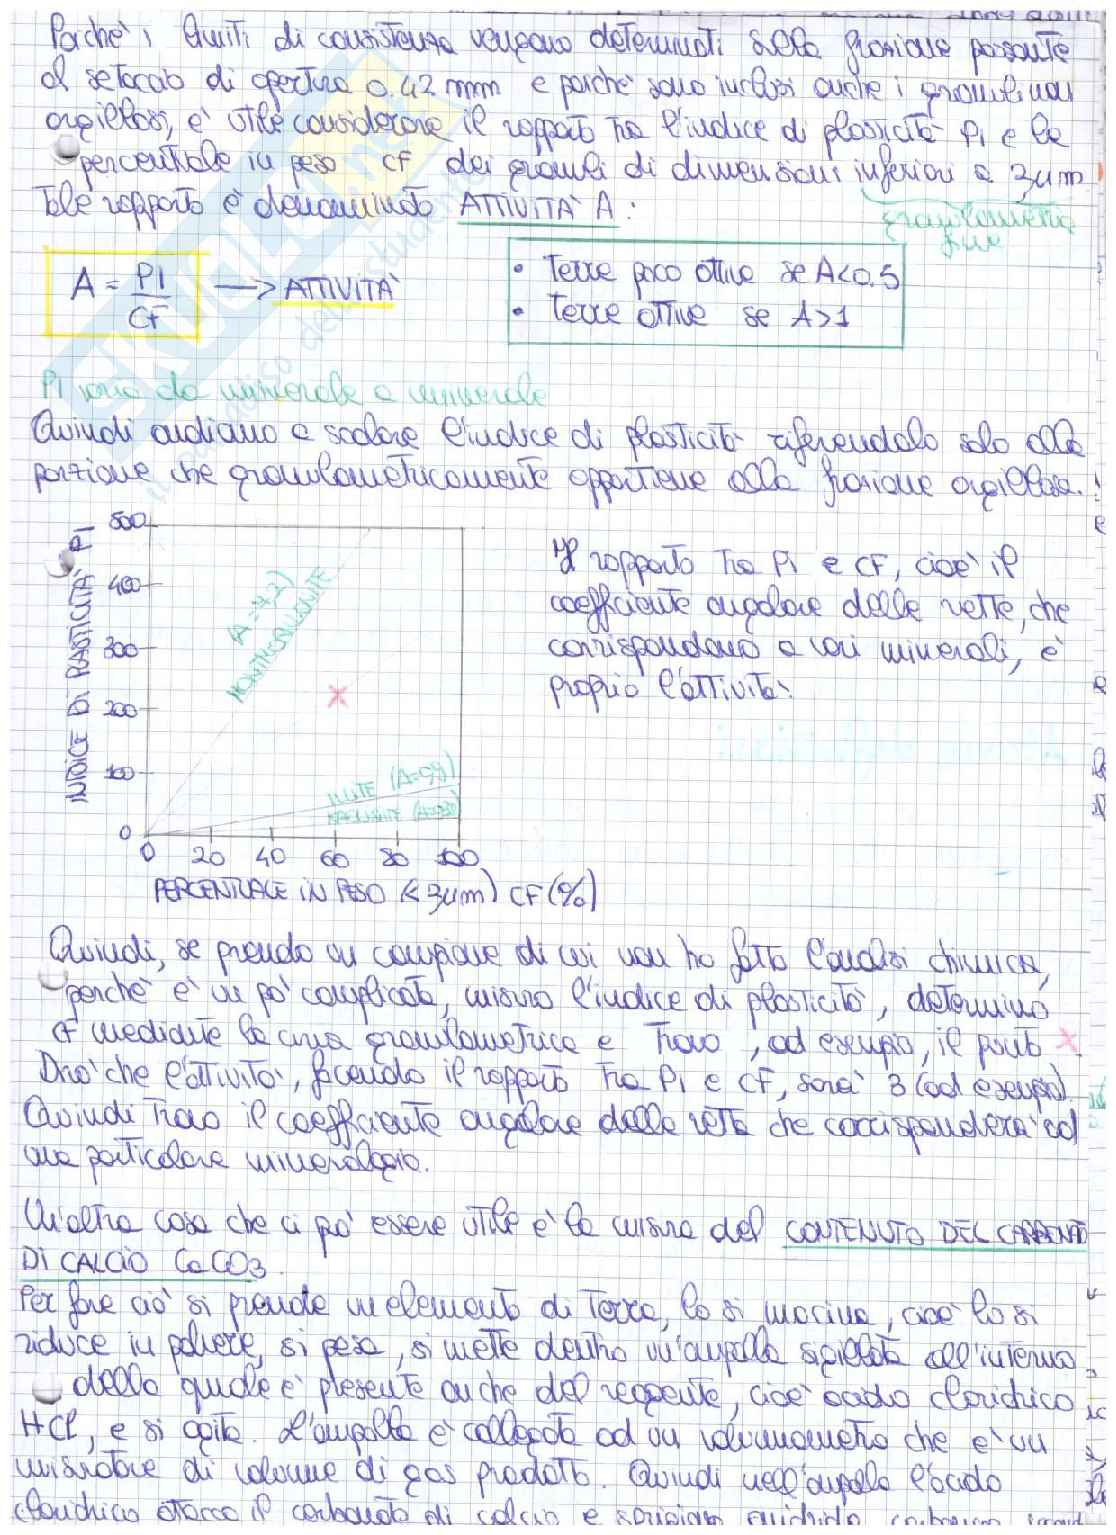 Poiché i limiti di consistenza vengono determinati sulla frazione passante
al setaccio di apertura 0.42 mm e poiché sono inclusi anche i granuli non
argillosi, e' utile considerare il rapporto tra l'indice di plasticità PI e la
percentuale in peso CF dei granuli di dimensioni inferiori a 2μm
Tale rapporto è denominato ATTIVITÀ A:
granulometria
fine
A = PI/CF → ATTIVITÀ
• Terre poco attive se A<0.5
• Terre attive se A>1
PI varia da minerale a minerale
Quindi andiamo a scalare l'indice di plasticità riferendolo solo alla
porzione che granulometricamente appartiene alla frazione argillosa.
INDICE DI PLASTICITÀ PI
500
400
300
200
100
0
(A=7,2)
MONTMORILLONITE
X
ILLITE (A=0,9)
CAOLINITE
0 20 40 60 80 100
PERCENTUALE IN PESO (<2μm) CF (%)
Il rapporto tra PI e CF, cioè il
coefficiente angolare delle rette, che
corrispondono a vari minerali, è
proprio l'attività.
Quindi, se prendo un campione di cui non ho fatto l'analisi chimica,
perché è un po' complicata, misuro l'indice di plasticità, determino
CF mediante la curva granulometrica e trovo, ad esempio, il punto X
Dirò che l'attività, facendo il rapporto tra PI e CF, sarà 3 (ad esempio).
Quindi trovo il coefficiente angolare della retta che corrisponderà ad
una particolare mineralogia.
Un'altra cosa che ci può essere utile è la misura del CONTENUTO DEL CARBONATO
DI CALCIO CaCO3.
Per fare ciò si prende un elemento di terra, lo si macina, cioè lo si
riduce in polvere, si pesa, si mette dentro un'ampolla sigillata all'interno
della quale è presente anche del reagente, cioè acido cloridrico
HCl, e si agita. L'ampolla è collegata ad un volumometro che è un
misuratore di volume di gas prodotto. Quindi nell'ampolla l'acido
cloridrico attacca il carbonato di calcio e sprigiona anidride carbonica